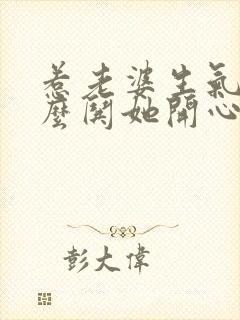 惹老婆生氣
麼鬨她開心
彭大偉